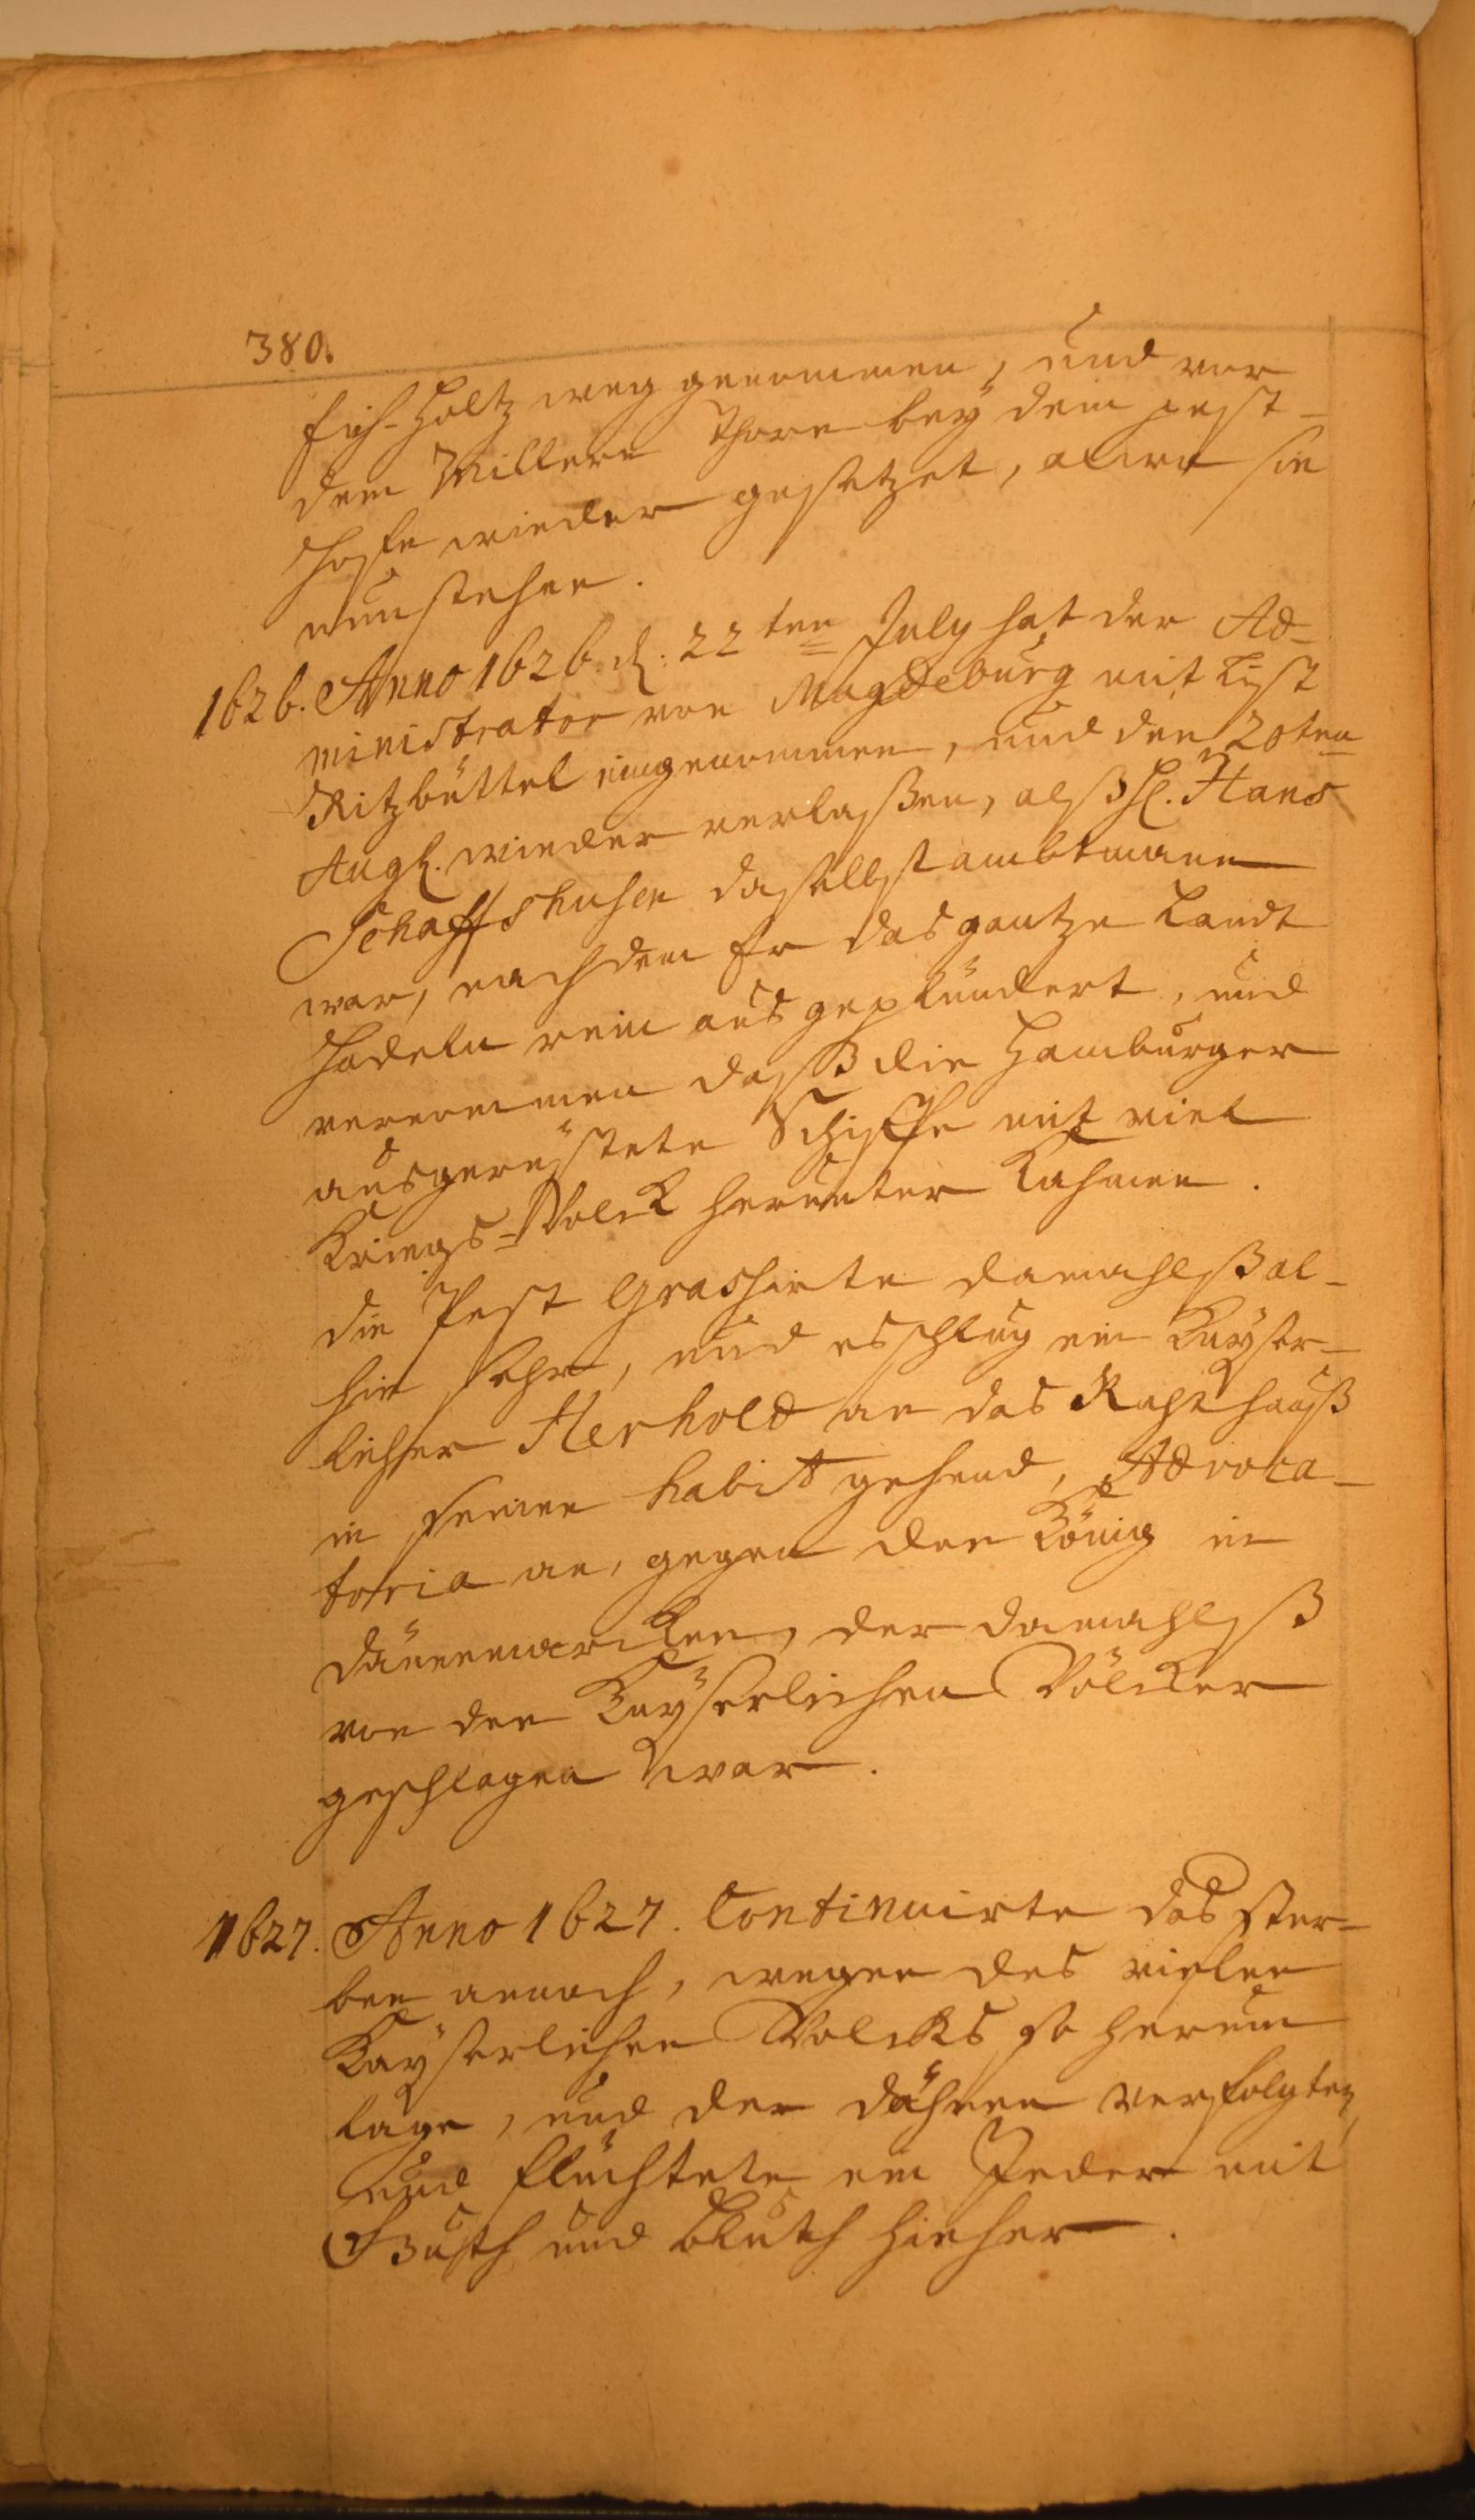 380.
Eich-Holtz weg genommen, und vor
dem Millern Thore bey dem pest-
Hofe wieder gesetzet, alwo sie
nun stehen.
1626. Anno 1626. d. 22ten July hat der Ad-
ministrator von Magdeburg mit List
Ritzbüttel eingenommen, und den 20ten
Augl. wieder verlaßen, alß H. Hans
Schaffshusen daselbst ambtmann
war, nachdem Er das gantze Landt
Hadeln rein ausgeplündert, und
vernommen daß die Hamburger
ausgerüstete Schiffe mit viel
Kriegs-Volck herunter kahmen.
die Pest Grassirte damahlß al-
hie sehr, und es schlug ein Kayser-
licher Herhold an das Rahthauß
in seinen habit gehend, Advoca-
toria an, gegen den König in
Dännemarcken, der damahlß
von den Kayserlichen Völcker
geschlagen war.
1627. Anno 1627. Continuirte das ster-
ben annoch, wegen des vielen
Kayserlichen Volcks so herum
lage, und den Dähnen verfolgten,
und flüchtete ein Jeder mit
Guth und Bluth hieher.